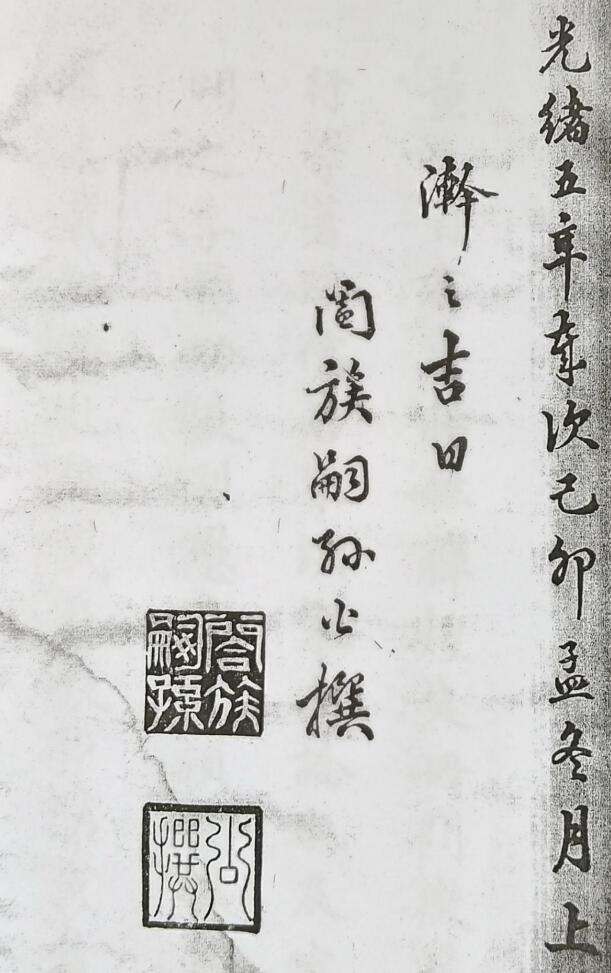 光緒五年歲次己卯孟冬月上
澣之吉日
閤族嗣孫公撰
閤族
嗣孫
公
撰